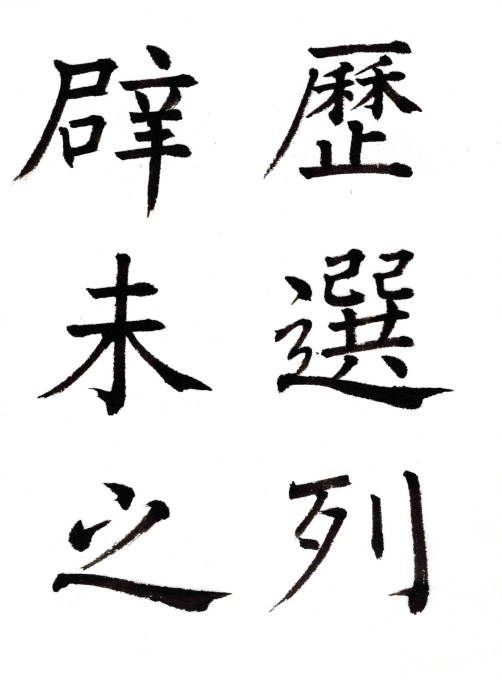 歷選列
辟未之